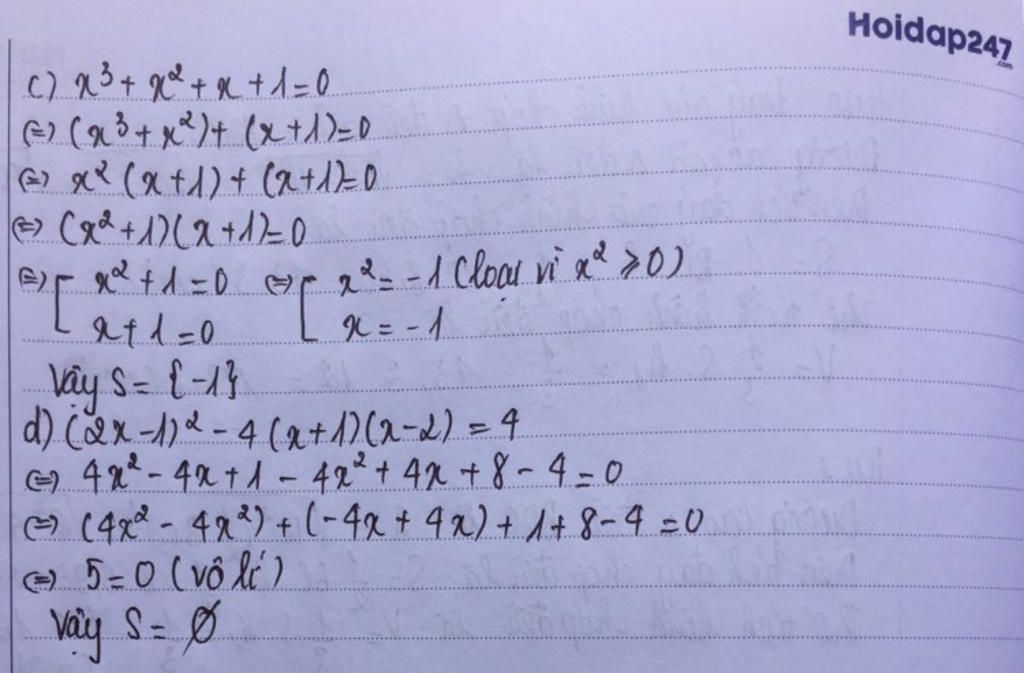 Hoidap247
.com
c) x³ + x² + x + 1 = 0
(=) (x³ + x²) + (x + 1) = 0
(=) x² (x + 1) + (x + 1) = 0
(=) (x² + 1)(x + 1) = 0
(=) [ x² + 1 = 0 (=) [ x² = -1 (loại vì x² ⩾ 0)
x + 1 = 0 x = -1
Vậy S = {-1}
d) (2x - 1)² - 4 (x + 1)(x - 2) = 4
(=) 4x² - 4x + 1 - 4x² + 4x + 8 - 4 = 0
(=) (4x² - 4x²) + (-4x + 4x) + 1 + 8 - 4 = 0
(=) 5 = 0 (vô lí)
Vậy S = Ø